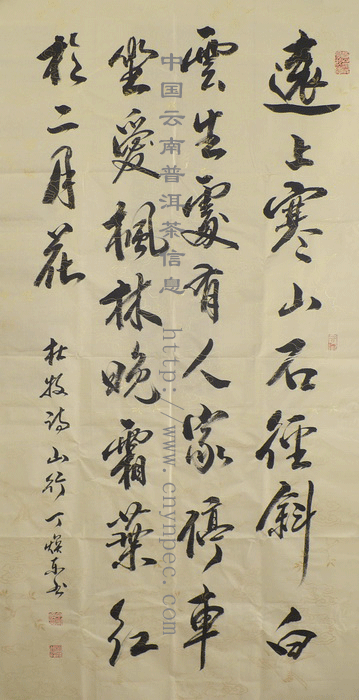 遠上寒山石徑斜白
雲生處有人家停車
坐愛楓林晚霜葉红
於二月花
杜牧詩山行丁焕东书
中国云南普洱茶信息 http://www.cnynpec.com